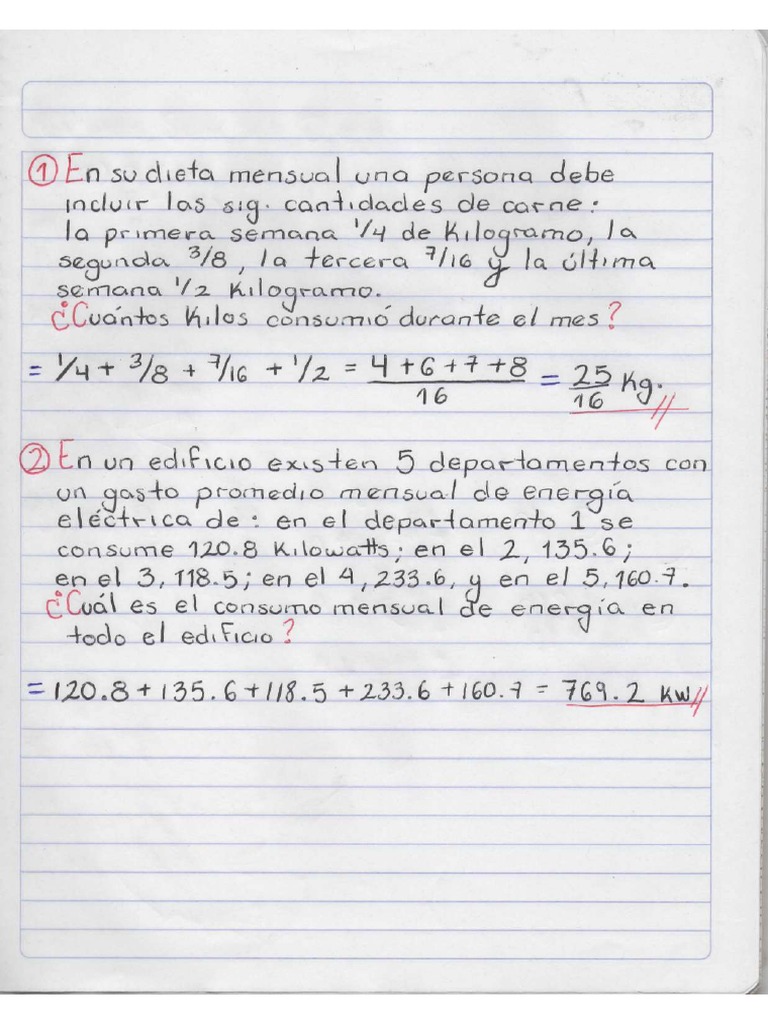 ① En su dieta mensual una persona debe
incluir las sig. cantidades de carne:
la primera semana 1/4 de Kilogramo, la
segunda 3/8, la tercera 7/16 y la última
semana 1/2 Kilogramo.
¿Cuántos Kilos consumió durante el mes?
= 1/4 + 3/8 + 7/16 + 1/2 = 4+6+7+8/16 = 25/16 Kg.
② En un edificio existen 5 departamentos con
un gasto promedio mensual de energía
eléctrica de: en el departamento 1 se
consume 120.8 Kilowatts; en el 2, 135.6;
en el 3, 118.5; en el 4, 233.6, y en el 5, 160.7.
¿Cuál es el consumo mensual de energía en
todo el edificio?
= 120.8 + 135.6 + 118.5 + 233.6 + 160.7 = 769.2 KW